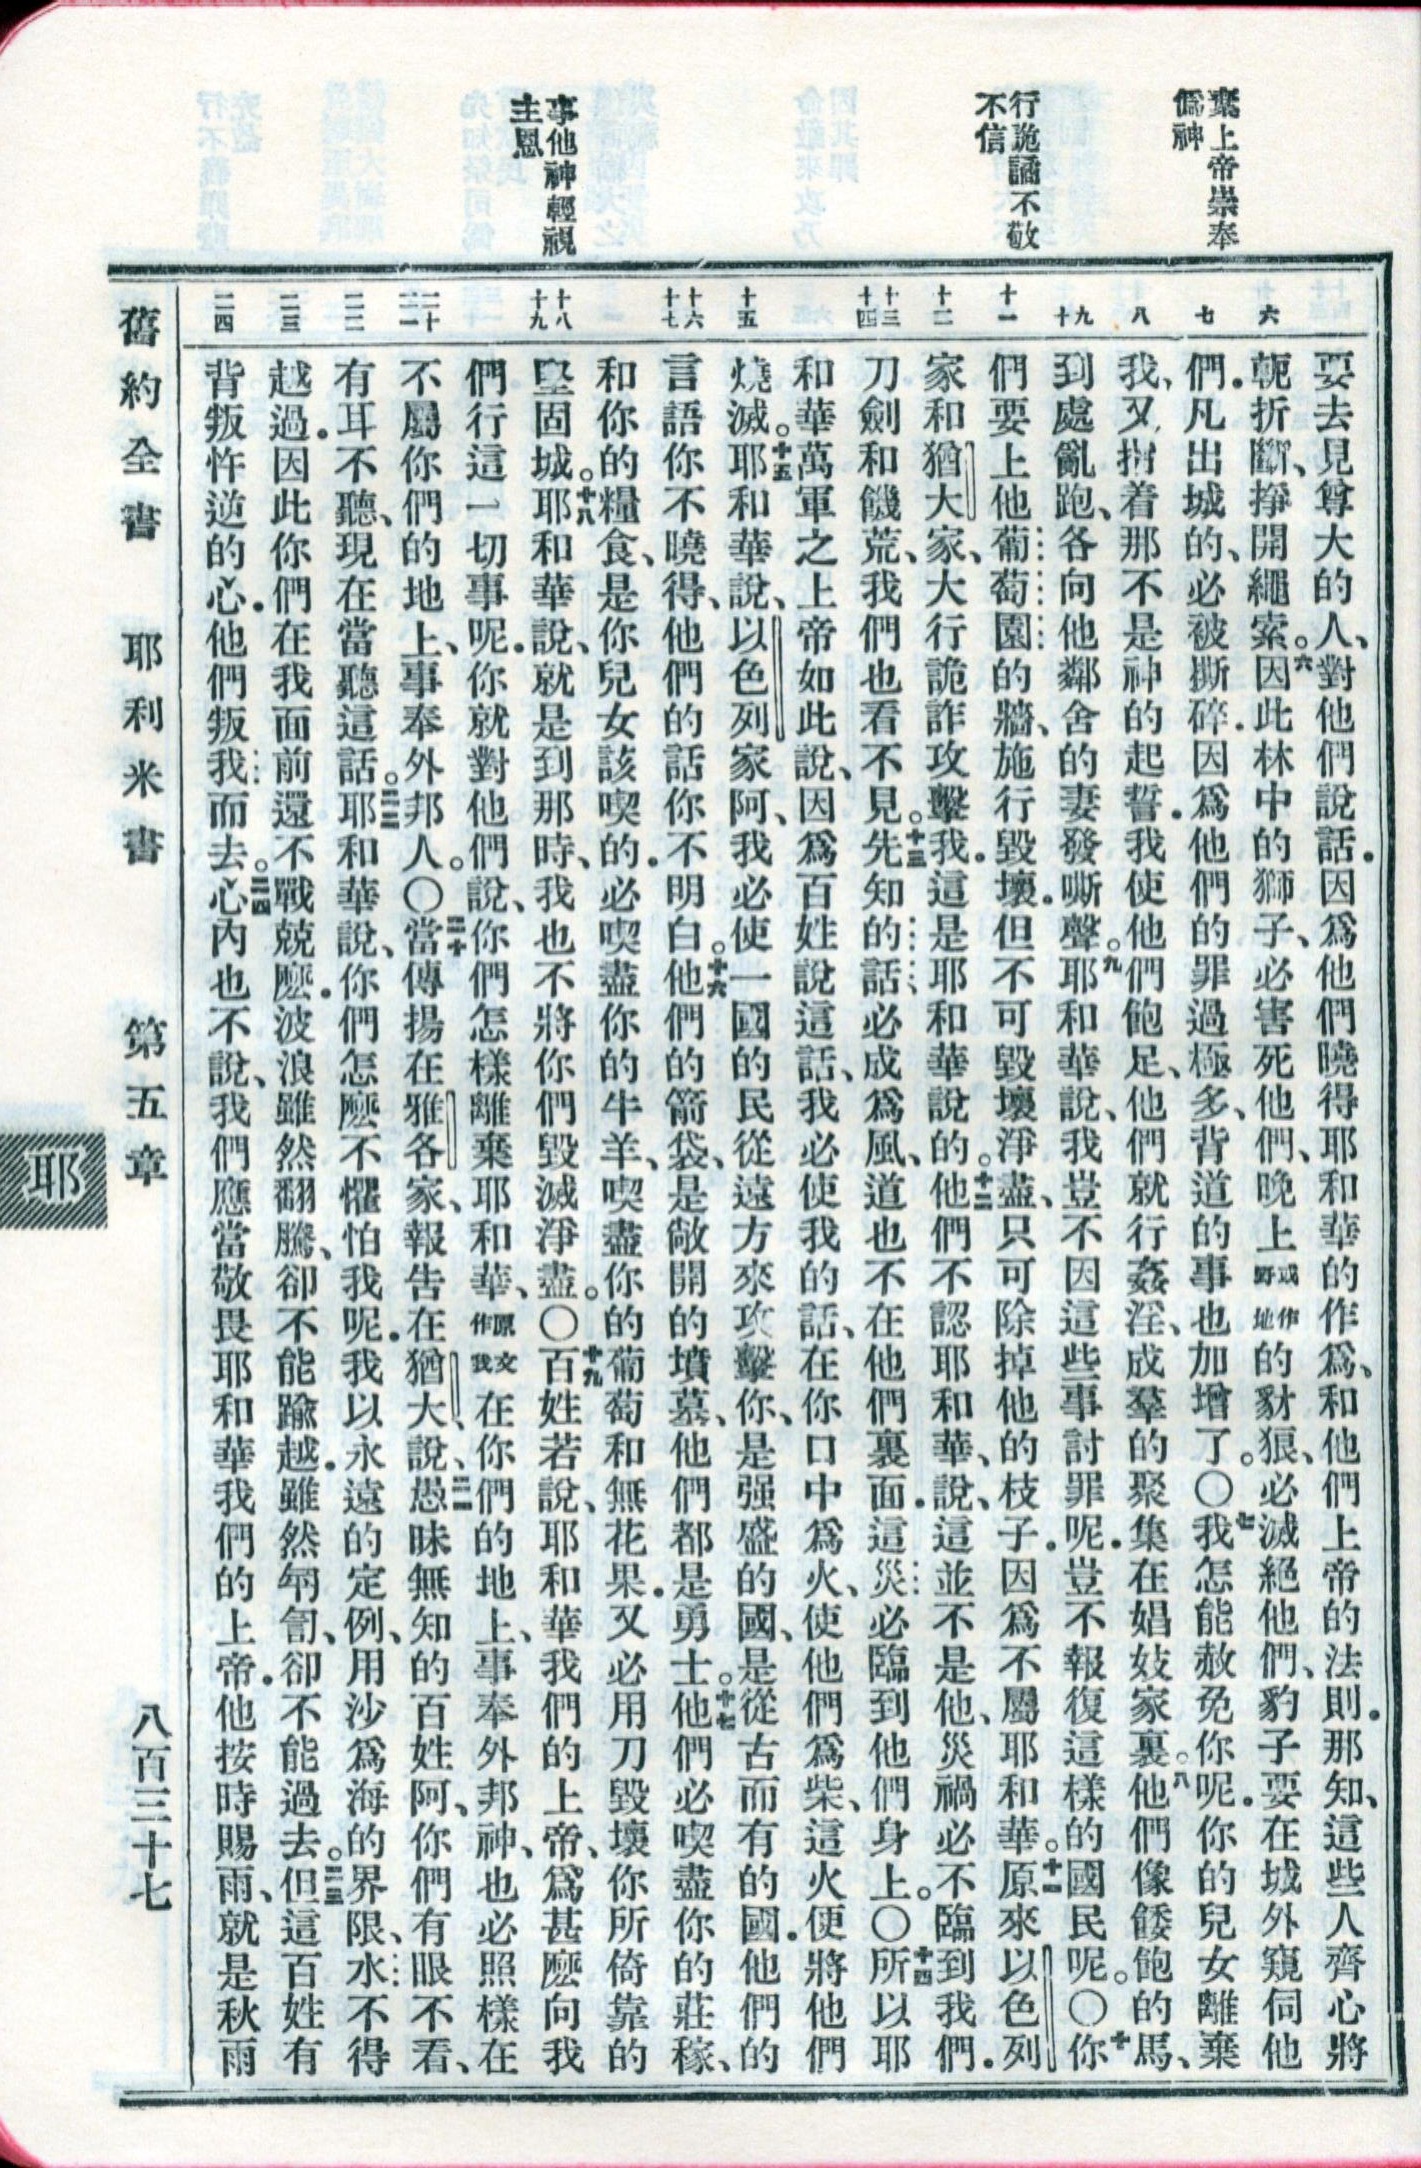 棄上帝崇奉
僞神
行詭譎不敬
不信
事他神輕視
主恩
六
七
八
九
十
十一
十二
十三
十四
十五
十六
十七
十八
十九
二十
二一
二二
二三
二四
要去見尊大的人、對他們說話．因爲他們曉得耶和華的作爲、和他們上帝的法則．那知、這些人齊心將
軛折斷、掙開繩索。六因此林中的獅子、必害死他們、晚上或作野地的豺狼、必滅絕他們、豹子要在城外窺伺他
們．凡出城的、必被撕碎．因爲他們的罪過極多、背道的事也加增了。〇七我怎能赦免你呢．你的兒女離棄
我、又指着那不是神的起誓．我使他們飽足、他們就行姦淫、成羣的聚集在娼妓家裏。八他們像餧飽的馬、
到處亂跑、各向他鄰舍的妻發嘶聲。九耶和華說、我豈不因這些事討罪呢．豈不報復這樣的國民呢。〇十你
們要上他葡萄園的牆、施行毀壞．但不可毀壞淨盡、只可除掉他的枝子．因爲不屬耶和華。十一原來以色列
家和猶大家、大行詭詐攻擊我．這是耶和華說的。十二他們不認耶和華、說、這並不是他、災禍必不臨到我們．
刀劍和饑荒、我們也看不見。十三先知的話必成爲風、道也不在他們裏面．這災必臨到他們身上。〇十四所以耶
和華萬軍之上帝如此說、因爲百姓說這話、我必使我的話、在你口中爲火、使他們爲柴、這火便將他們
燒滅。十五耶和華說、以色列家阿、我必使一國的民從遠方來攻擊你、是强盛的國、是從古而有的國．他們的
言語你不曉得、他們的話你不明白。十六他們的箭袋、是敞開的墳墓、他們都是勇士。十七他們必喫盡你的莊稼、
和你的糧食、是你兒女該喫的．必喫盡你的牛羊、喫盡你的葡萄和無花果．又必用刀毀壞你所倚靠的
堅固城。十八耶和華說、就是到那時、我也不將你們毀滅淨盡。〇十九百姓若說、耶和華我們的上帝、爲甚麽向我
們行這一切事呢．你就對他們說、你們怎樣離棄耶和華、原文作我在你們的地上、事奉外邦神、也必照樣在
不屬你們的地上、事奉外邦人。〇二十當傳揚在雅各家、報告在猶大、說、二一愚昧無知的百姓阿、你們有眼不看、
有耳不聽、現在當聽這話。二二耶和華說、你們怎麽不懼怕我呢．我以永遠的定例、用沙爲海的界限、水不得
越過．因此你們在我面前還不戰兢麽．波浪雖然翻騰、卻不能踰越．雖然匉訇、卻不能過去。二三但這百姓有
背叛忤逆的心．他們叛我而去。二四心內也不說、我們應當敬畏耶和華我們的上帝．他按時賜雨、就是秋雨
舊約全書　耶利米書　第五章　八百三十七
耶